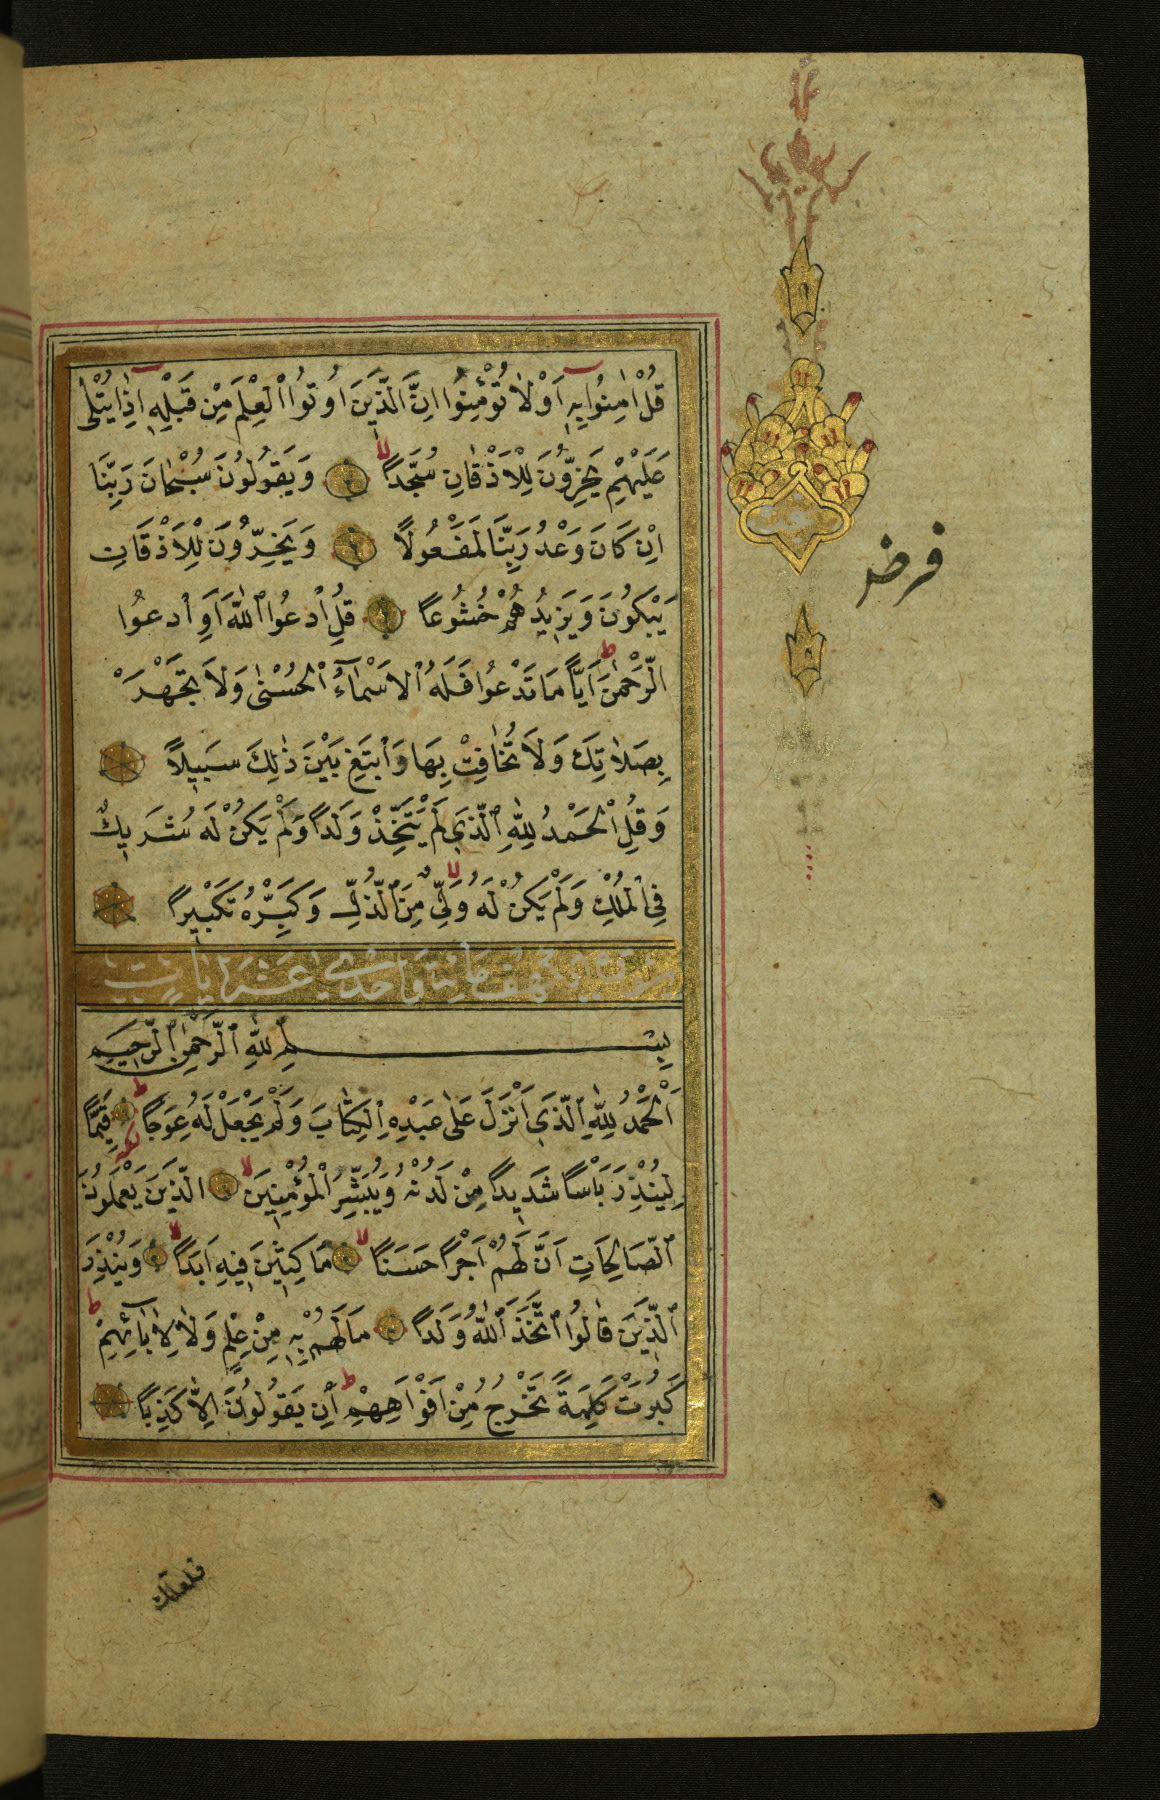 قُلْ اٰمِنُوا بِهٖٓ اَوْ لَا تُؤْمِنُوا اِنَّ الَّذٖينَ اُوتُوا الْعِلْمَ مِنْ قَبْلِهٖٓ اِذَا يُتْلٰى
عَلَيْهِمْ يَخِرُّونَ لِلْاَذْقَانِ سُجَّدًا وَيَقُولُونَ سُبْحَانَ رَبِّنَا
اِنْ كَانَ وَعْدُ رَبِّنَا لَمَفْعُولًا وَيَخِرُّونَ لِلْاَذْقَانِ
يَبْكُونَ وَيَزٖيدُهُمْ خُشُوعًا قُلِ ادْعُوا اللّٰهَ اَوِ ادْعُوا
الرَّحْمٰنَ اَيًّا مَا تَدْعُوا فَلَهُ الْاَسْمَآءُ الْحُسْنٰى وَلَا تَجْهَرْ
بِصَلَاتِكَ وَلَا تُخَافِتْ بِهَا وَابْتَغِ بَيْنَ ذٰلِكَ سَبٖيلًا
وَقُلِ الْحَمْدُ لِلّٰهِ الَّذٖي لَمْ يَتَّخِذْ وَلَدًا وَلَمْ يَكُنْ لَهُ شَرٖيكٌ
فِي الْمُلْكِ وَلَمْ يَكُنْ لَهُ وَلِيٌّ مِنَ الذُّلِّ وَكَبِّرْهُ تَكْبٖيرًا
سورة الكهف مائة واحدي عشر ايات
بِسْمِ اللّٰهِ الرَّحْمٰنِ الرَّحٖيمِ
اَلْحَمْدُ لِلّٰهِ الَّذٖٓي اَنْزَلَ عَلٰى عَبْدِهِ الْكِتَابَ وَلَمْ يَجْعَلْ لَهُ عِوَجًا قَيِّمًا
لِيُنْذِرَ بَاْسًا شَدٖيدًا مِنْ لَدُنْهُ وَيُبَشِّرَ الْمُؤْمِنٖينَ الَّذٖينَ يَعْمَلُونَ
الصَّالِحَاتِ اَنَّ لَهُمْ اَجْرًا حَسَنًا مَاكِثٖينَ فٖيهِ اَبَدًا وَيُنْذِرَ
الَّذٖينَ قَالُوا اتَّخَذَ اللّٰهُ وَلَدًا مَا لَهُمْ بِهٖ مِنْ عِلْمٍ وَلَا لِاٰبَآئِهِمْ
كَبُرَتْ كَلِمَةً تَخْرُجُ مِنْ اَفْوَاهِهِمْ اِنْ يَقُولُونَ اِلَّا كَذِبًا
فلعلك